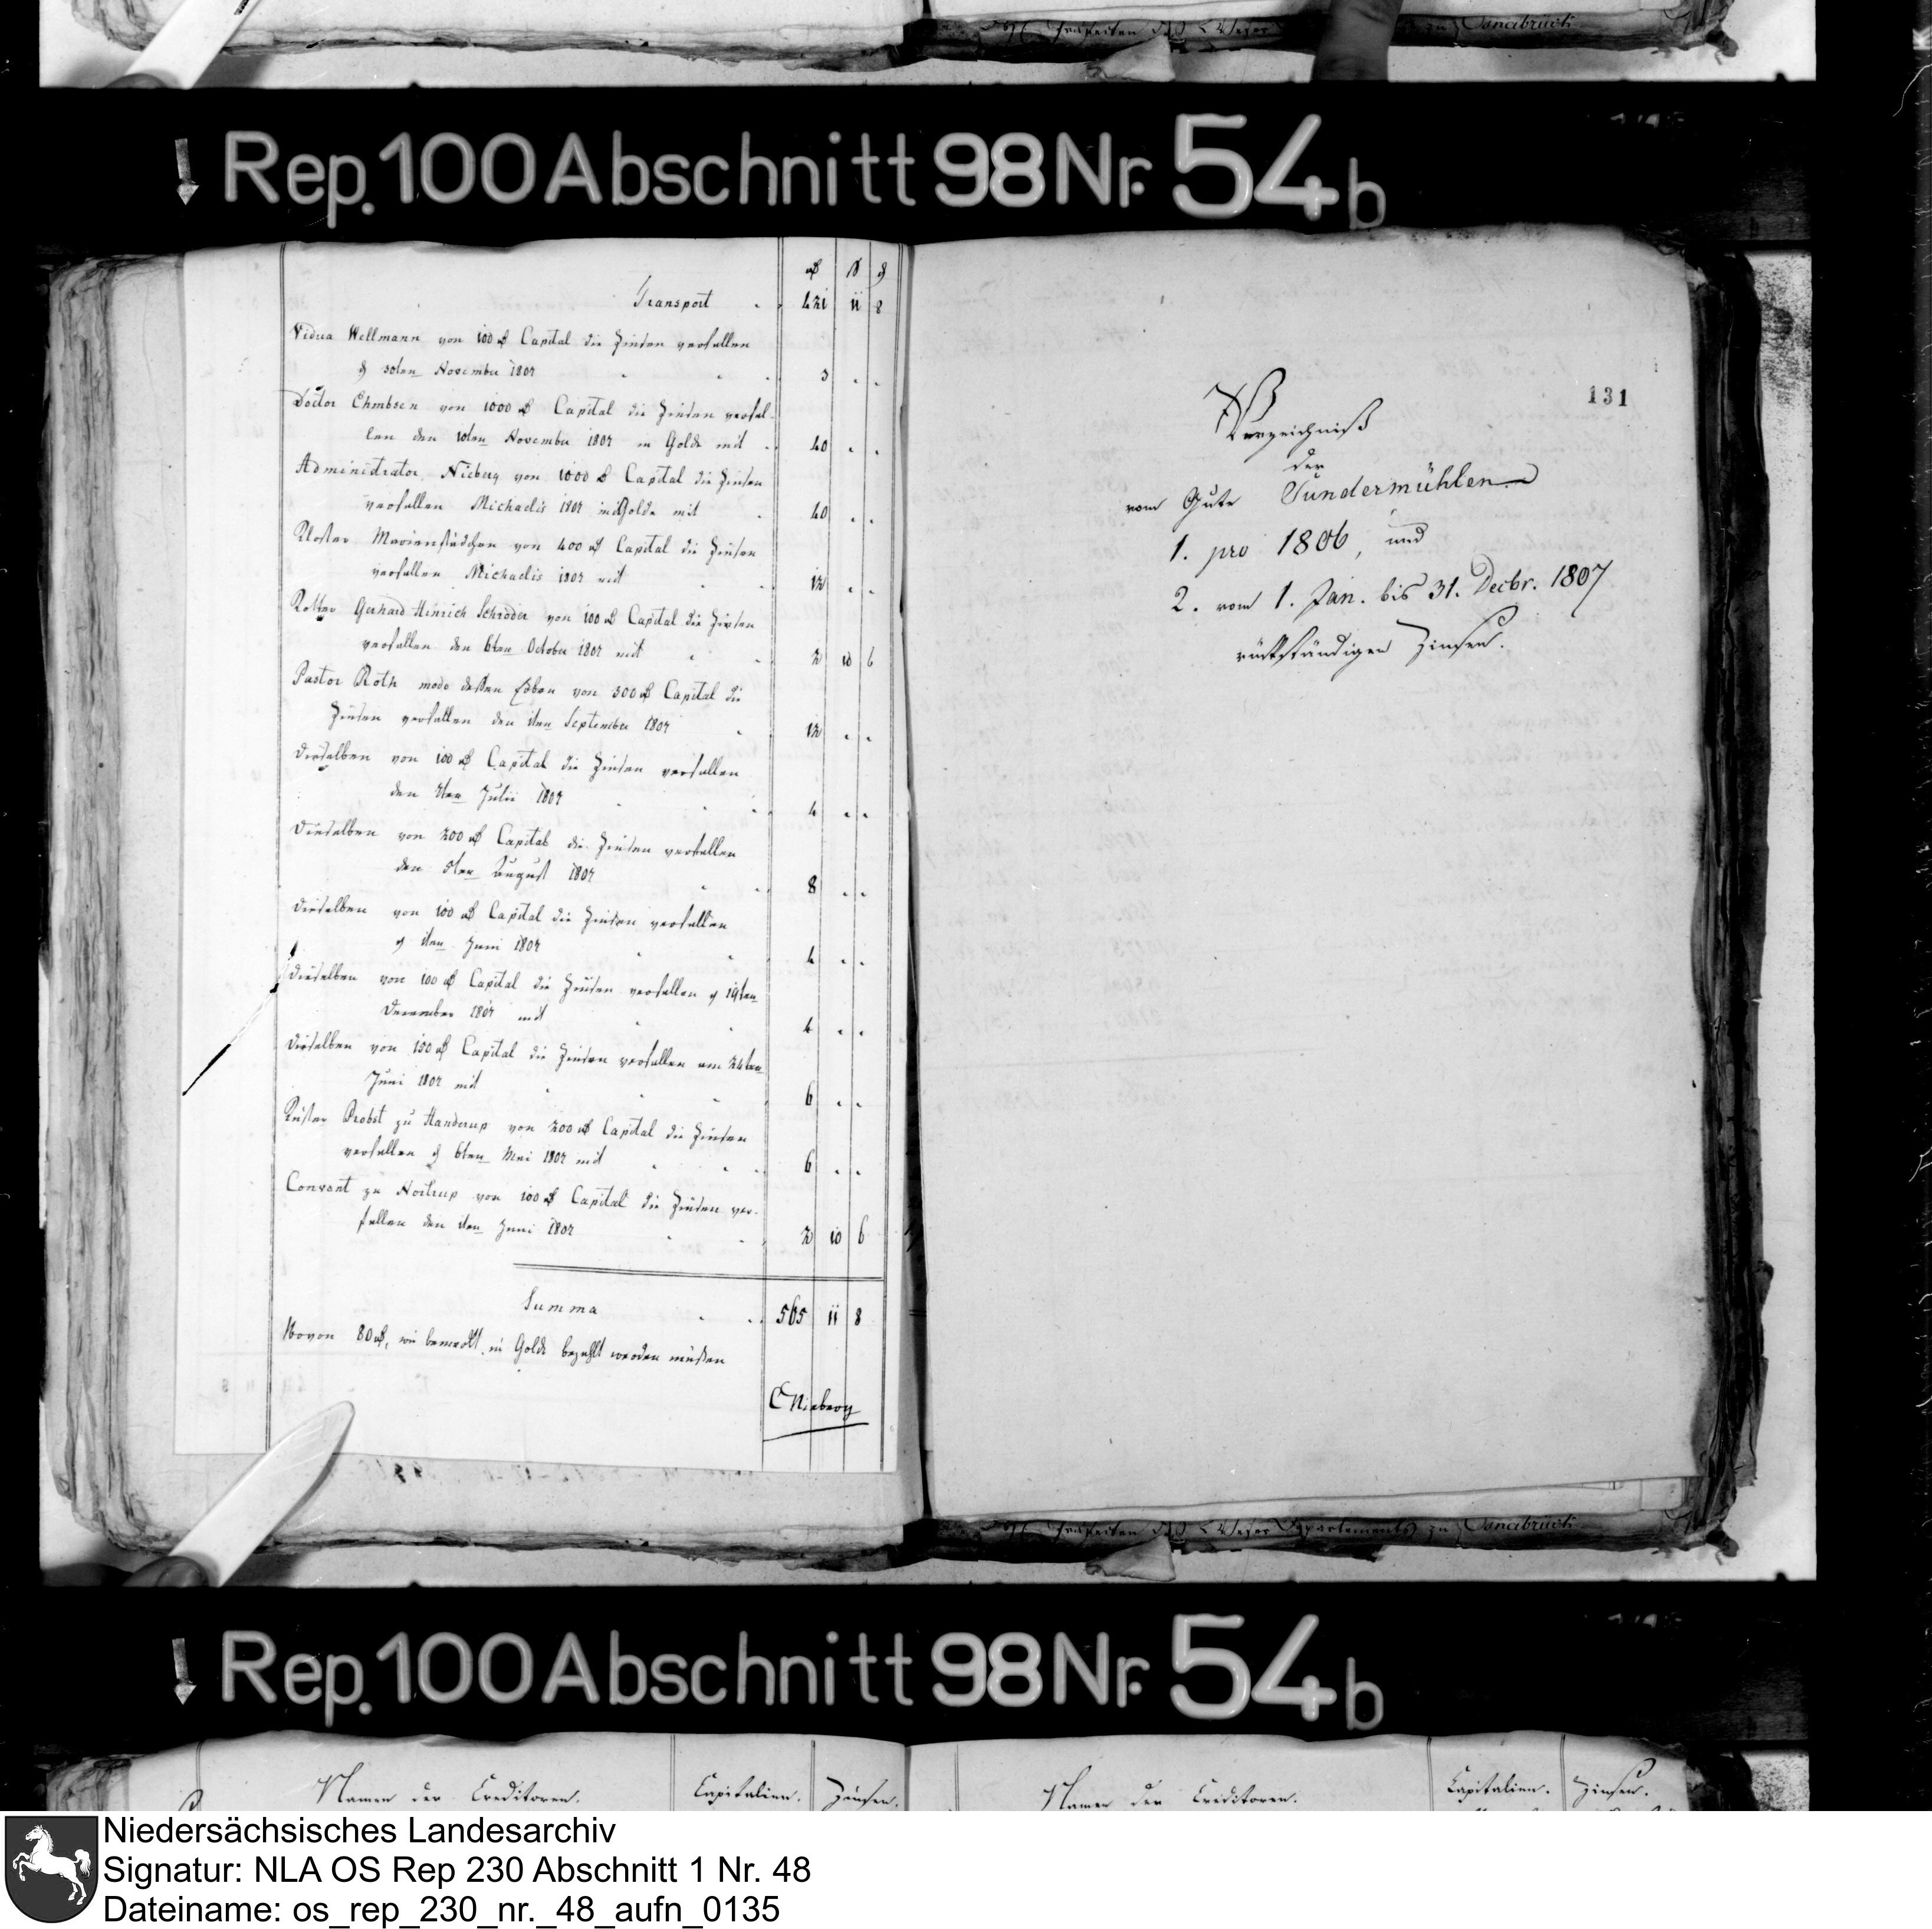 zu Osnabrück
Rep. 100 Abschnitt 98 Nr. 54b
Transport 421 11 8
Vidua Wellmann von 100 Capital die Zinsen verfallen
30ten November 1807 3
Doctor Ehmbsen von 1000 Capital die Zinsen verfal-
len den 10ten November 1807 in Golde mit 40
Administrator Nieberg von 1000 Capital die Zinsen
verfallen Michaelis 1807 in Golde mit 40
Kloster Marienstädchen von 400 Capital die Zinsen
verfallen Michaelis 1807 mit 12
Gerhard Hinrich Schröder von 100 Capital die Zinsen
verfallen den 6ten October 1807 mit 2 10 6
Pastor Roth modo deßen Erben von 300 Capital die
Zinsen verfallen den 1ten September 1807 12
Dieselben von 100 Capital die Zinsen verfallen
den Julii 1807 4
Dieselben von 200 Capital die Zinsen verfallen
den August 1807 8
Dieselben von 100 Capital die Zinsen verfallen
1ten Juni 1807 4
Dieselben von 100 Capital die Zinsen verfallen 19ten
December 1807 mit 4
Dieselben von 150 Capital die Zinsen verfallen am 24ten
Juni 1807 mit 6
Küster Probst zu Handerup von 200 Capital die Zinsen
verfallen 6ten Mai 1807 mit 6
Convent zu Nortrup von 100 Capital die Zinsen ver-
fallen den 1ten Juni 1807 2 10 6
Summa 565 11 8
Wovon 80, wie bemerkt, in Golde bezahlt werden müßen
CNieberg
131
Verzeichniß
der
vom Gute Sundermühlen
1. pro 1806, und
2. vom 1. Jan. bis 31. Decbr. 1807
rückständigen Zinsen.
des Weser Departements zu Osnabrück
Rep. 100 Abschnitt 98 Nr. 54b
Namen der Creditoren. Capitalien. Zinsen.
Namen der Creditoren. Capitalien. Zinsen.
Niedersächsisches Landesarchiv
Signatur: NLA OS Rep 230 Abschnitt 1 Nr. 48
Dateiname: os_rep_230_nr._48_aufn_0135